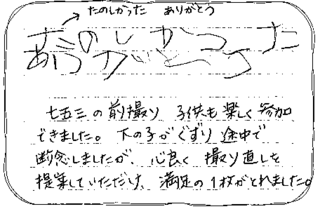 たのしかった ありがとう
たのしかった
ありがとう
七五三の前撮り 子供も楽しく参加
できました。下の子がぐずり途中で
断念しましたが、心良く撮り直しを
提案していただけ、満足の1枚がとれました。